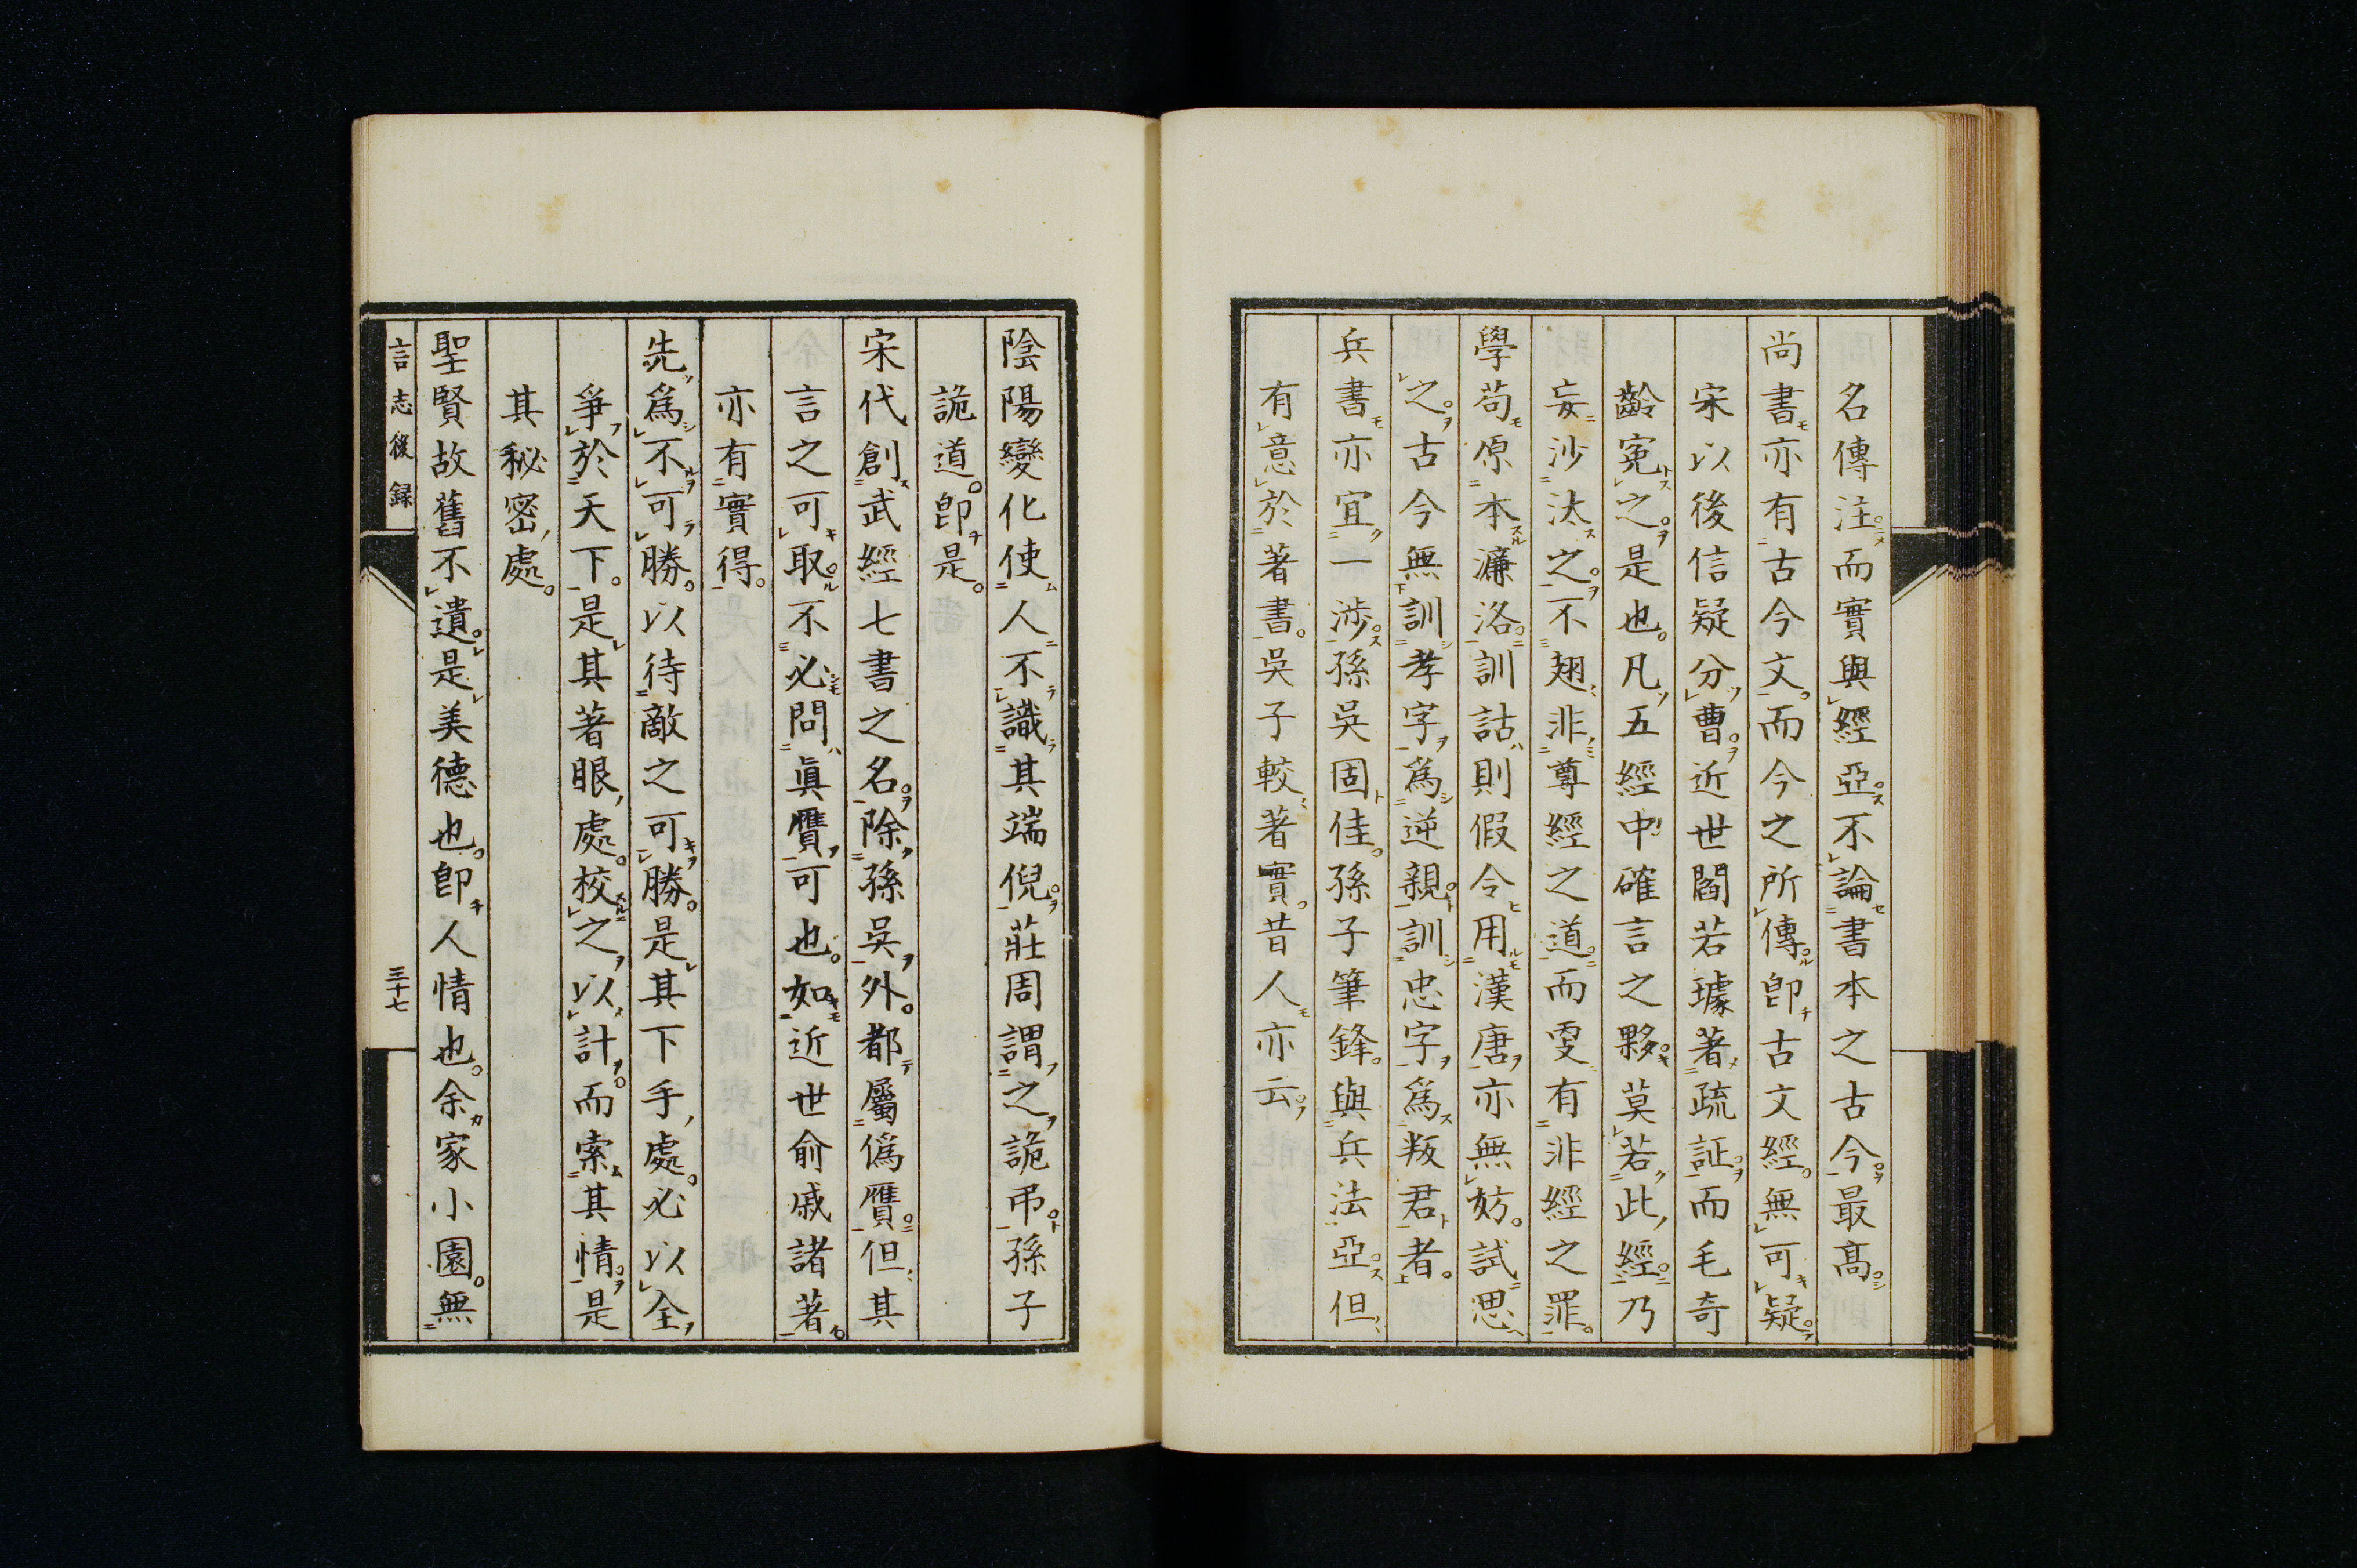 名傳注而實與經亞不論書本之古今最高
尚書亦有古今文而今之所傳卽古文經無可疑
宋以後信疑分曹近世閻若璩著疏証而毛奇
齡寃之是也凡五經中確言之夥莫若此經乃
妄沙汰之不翅非尊經之道而雯有非經之罪
學苟原本濂洛訓詁則假令用漢唐亦無妨試思
之古今無訓孝字爲逆親訓忠字爲叛君者
兵書亦宜一渉孫吳固佳孫子筆鋒與兵法亞但
有意於著書吳子較著實昔人亦云
陰陽變化使人不識其端倪莊周謂之詭弔孫子
詭道卽是
宋代創武經七書之名除孫吳外都屬僞贋但其
言之可取不必問眞贋可也如近世俞戚諸著
亦有實得
先爲不可勝以待敵之可勝是其下手處必以全
爭於天下是其著眼處校之以計而索其情是
其秘密處
聖賢故舊不遺是美德也卽人情也余家小園無
言志後録
三十七